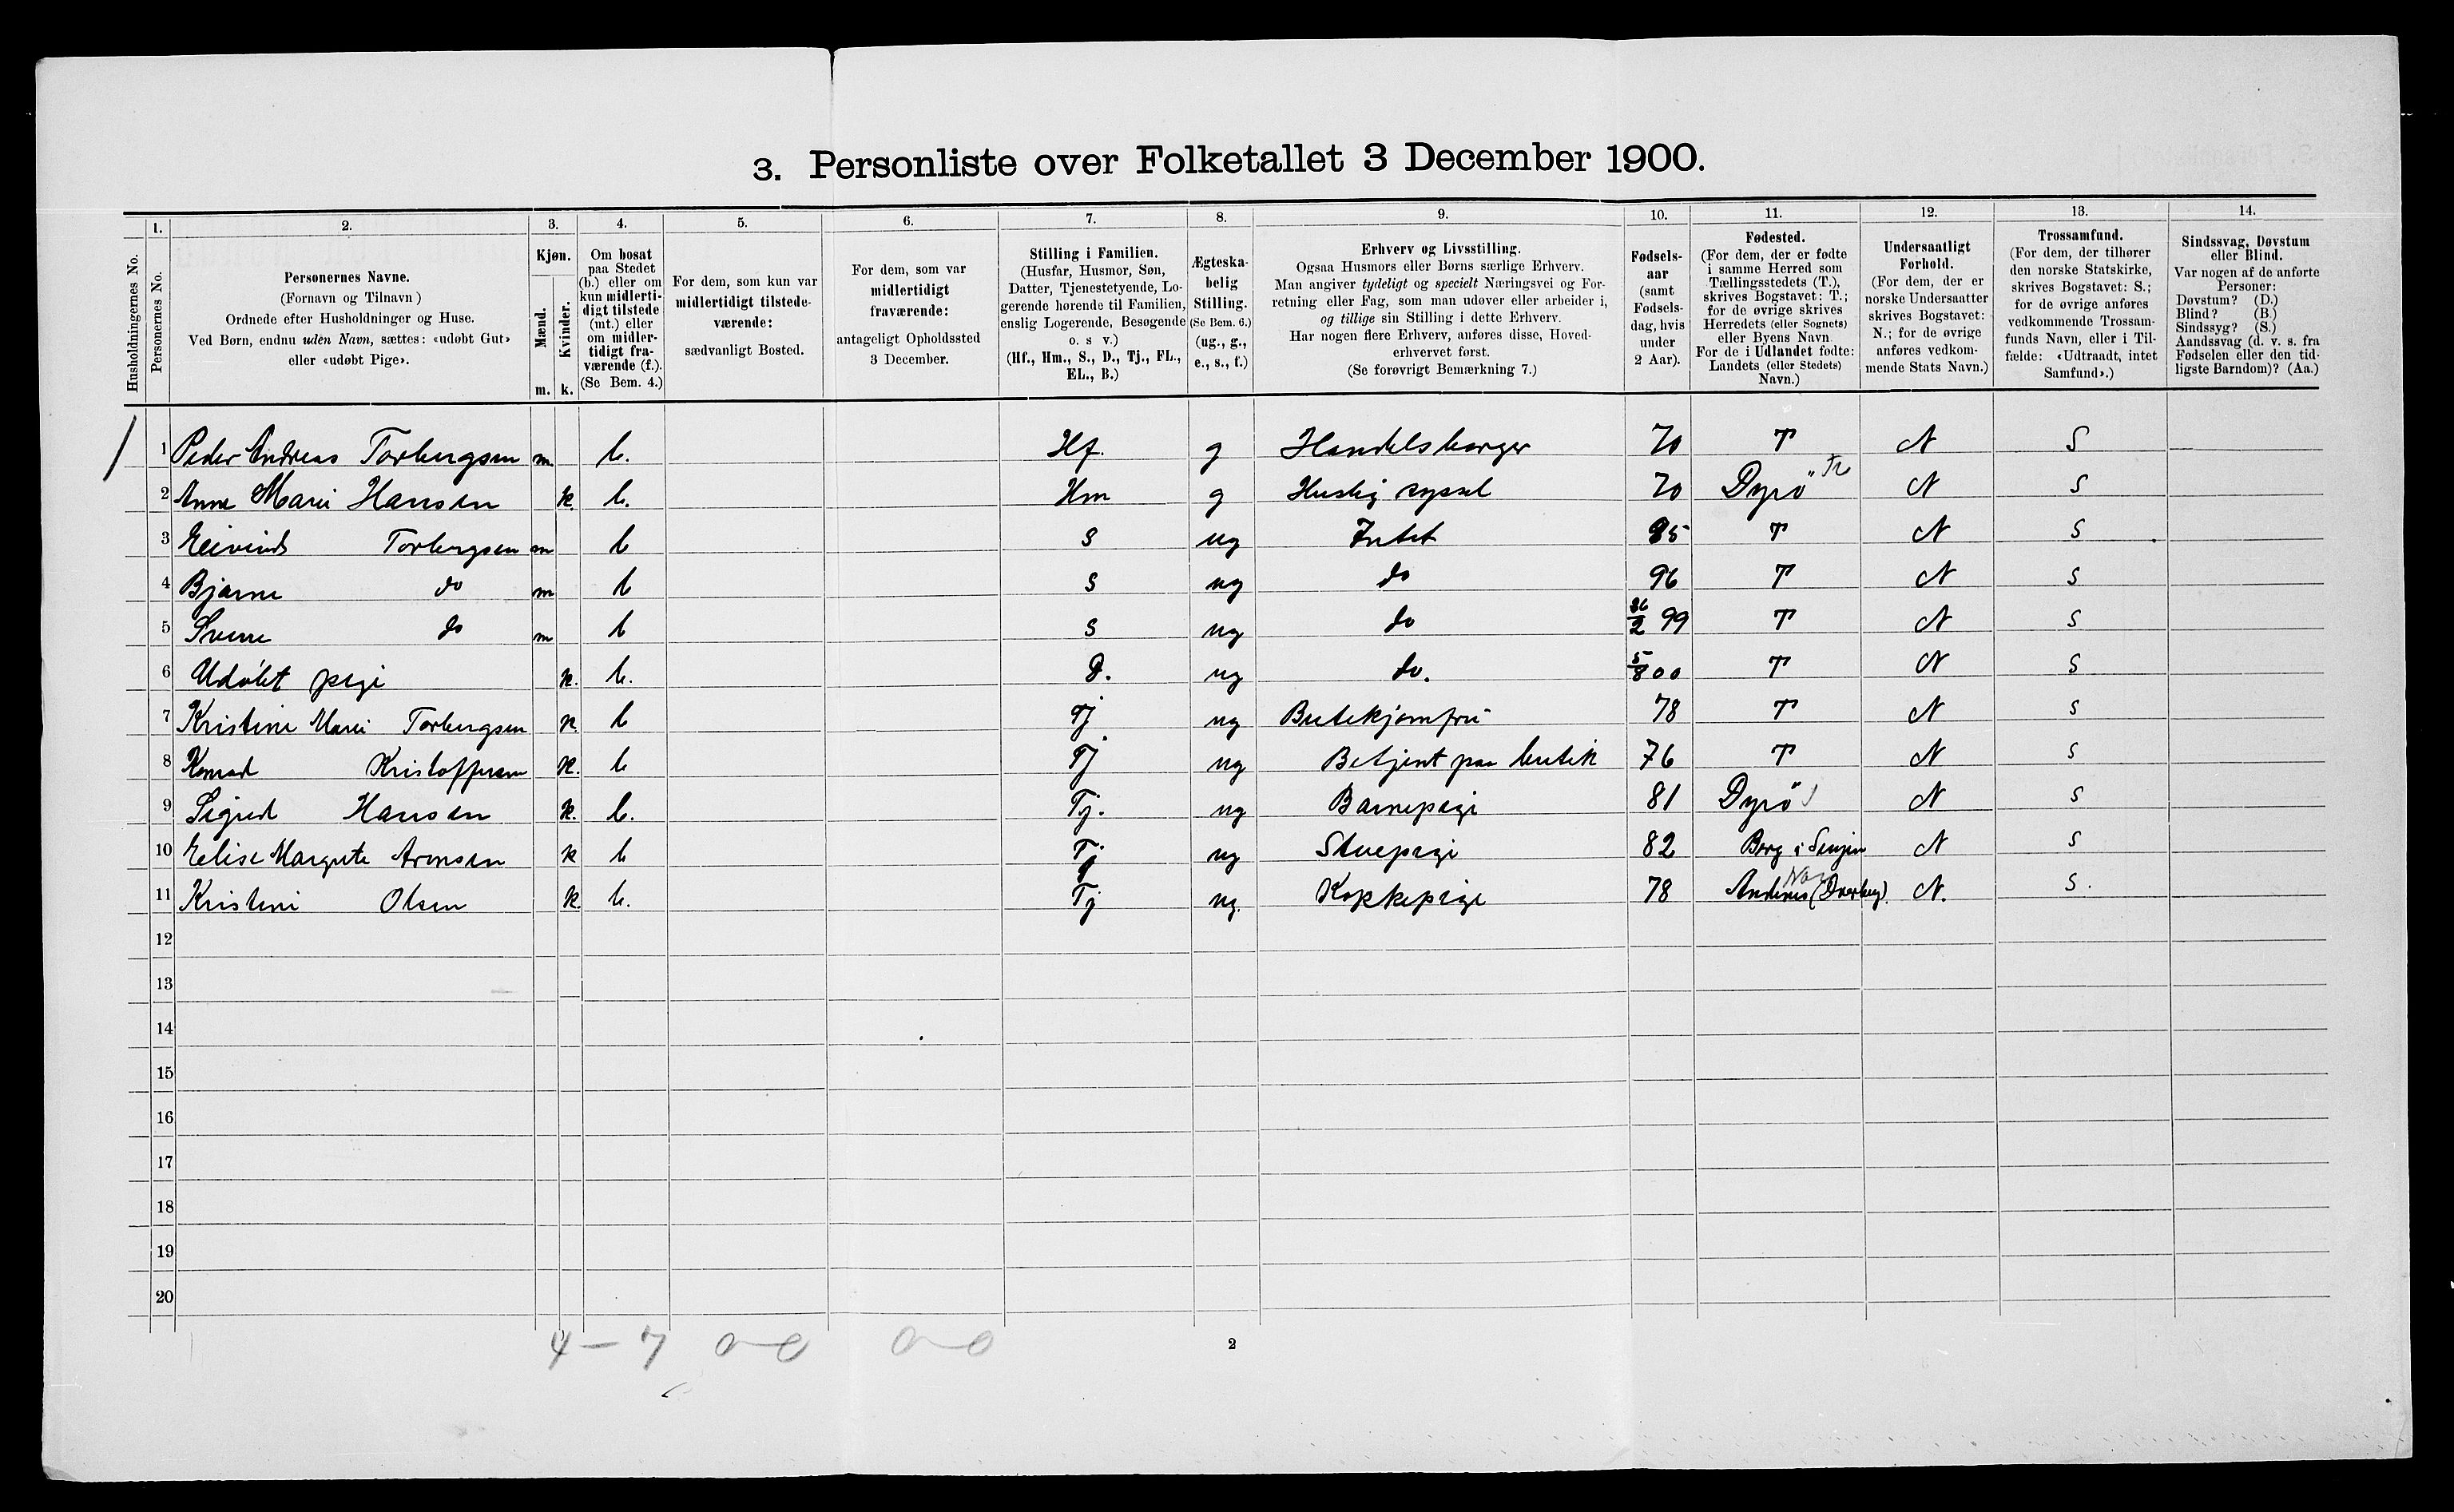 3. Personliste over Folketallet 3 December 1900.
Husholdningernes No.
1.
Personernes No.
2.
Personernes Navne.
(Fornavn og Tilnavn)
Ordnede efter Husholdninger og Huse.
Ved Børn, endnu uden Navn, sættes: «udøbt Gut»
eller «udøbt Pige».
3.
Kjøn.
Mænd.
Kvinder.
m. k.
4.
Om bosat
paa Stedet
(b.) eller om
kun midlerti-
digt tilstede
(mt.) eller
om midler-
tidigt fra-
værende (f.).
(Se Bem. 4.)
5.
For dem, som kun var
midlertidigt tilstede-
værende:
sædvanligt Bosted.
6.
For dem, som var
midlertidigt
fraværende:
antageligt Opholdssted
3 December.
7.
Stilling i Familien.
(Husfar, Husmor, Søn,
Datter, Tjenestetyende, Lo-
gerende hørende til Familien,
enslig Logerende, Besøgende
o. s v.)
(Hf., Hm., S., D., Tj., FL.,
EL., B.)
8.
Ægteska-
belig
Stilling.
(Se Bem. 6.)
(ug., g.,
e., s., f.)
9.
Erhverv og Livsstilling.
Ogsaa Husmors eller Børns særlige Erhverv.
Man angiver tydeligt og specielt Næringsvei og For-
retning eller Fag, som man udøver eller arbeider i,
og tillige sin Stilling i dette Erhverv.
Har nogen flere Erhverv, anføres disse, Hoved-
erhvervet først.
(Se forøvrigt Bemærkning 7.)
10.
Fødsels-
aar
(samt
Fødsels-
dag, hvis
under
2 Aar).
11.
Fødested.
(For dem, der er fødte
i samme Herred som
Tællingsstedets (T.),
skrives Bogstavet: T.;
for de øvrige skrives
Herredets (eller Sognets)
eller Byens Navn.
For de i Udlandet fødte:
Landets (eller Stedets)
Navn.)
12.
Undersaatligt
Forhold.
(For dem, der er
norske Undersaatter
skrives Bogstavet:
N.; for de øvrige
anføres vedkom-
mende Stats Navn.)
13.
Trossamfund.
(For dem, der tilhører
den norske Statskirke,
skrives Bogstavet: S.;
for de øvrige anføres
vedkommende Trossam-
funds Navn, eller i Til-
fælde: «Udtraadt, intet
Samfund».)
14.
Sindssvag, Døvstum
eller Blind.
Var nogen af de anførte
Personer:
Døvstum? (D.)
Blind? (B.)
Sindssyg? (S.)
Aandssvag (d. v. s. fra
Fødselen eller den tid-
ligste Barndom)? (Aa.)
1 Peder Andreas Torbergsen m. b. Hf. g Handelsborger 70 T N S
2 Anna Marie Hansen k. b. Hm g Huslig syssel 70 Dyrö Tr N S
3 Eeivind Torbergsen m b S ug Intet 95 T N S
4 Bjarne do m b S ug do 96 T N S
5 Sverre do m b S ug do 26/2 99 T N S
6 Udöbt pige k. b. D. ug do. 5/8 00 T N S
7 Kristine Marie Torbergsen k. b Tj ug Butikjomfru 78 T N S
8 Konrad Kristoffersen k. b Tj ug Betjent paa butik 76 T N S
9 Sigrid Hansen k. b. Tj. ug Barnepige 81 Dyrö N S
10 Elise Margrete Aronsen k b Tj ug Stuepige 82 Berg i Senjen N S
11 Kristine Olsen k. b. Tj ug. Kokkepige 78 Andenes (Dverberg). N. S.
12
13
14
15
16
17
18
19
20
4 — 7 0—0 0—0
2